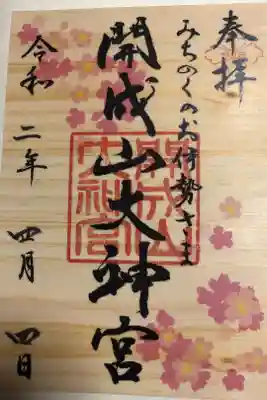 奉拝
みちのくのお伊勢さま
開成山大神宮
令和二年四月四日
開成山大神宮